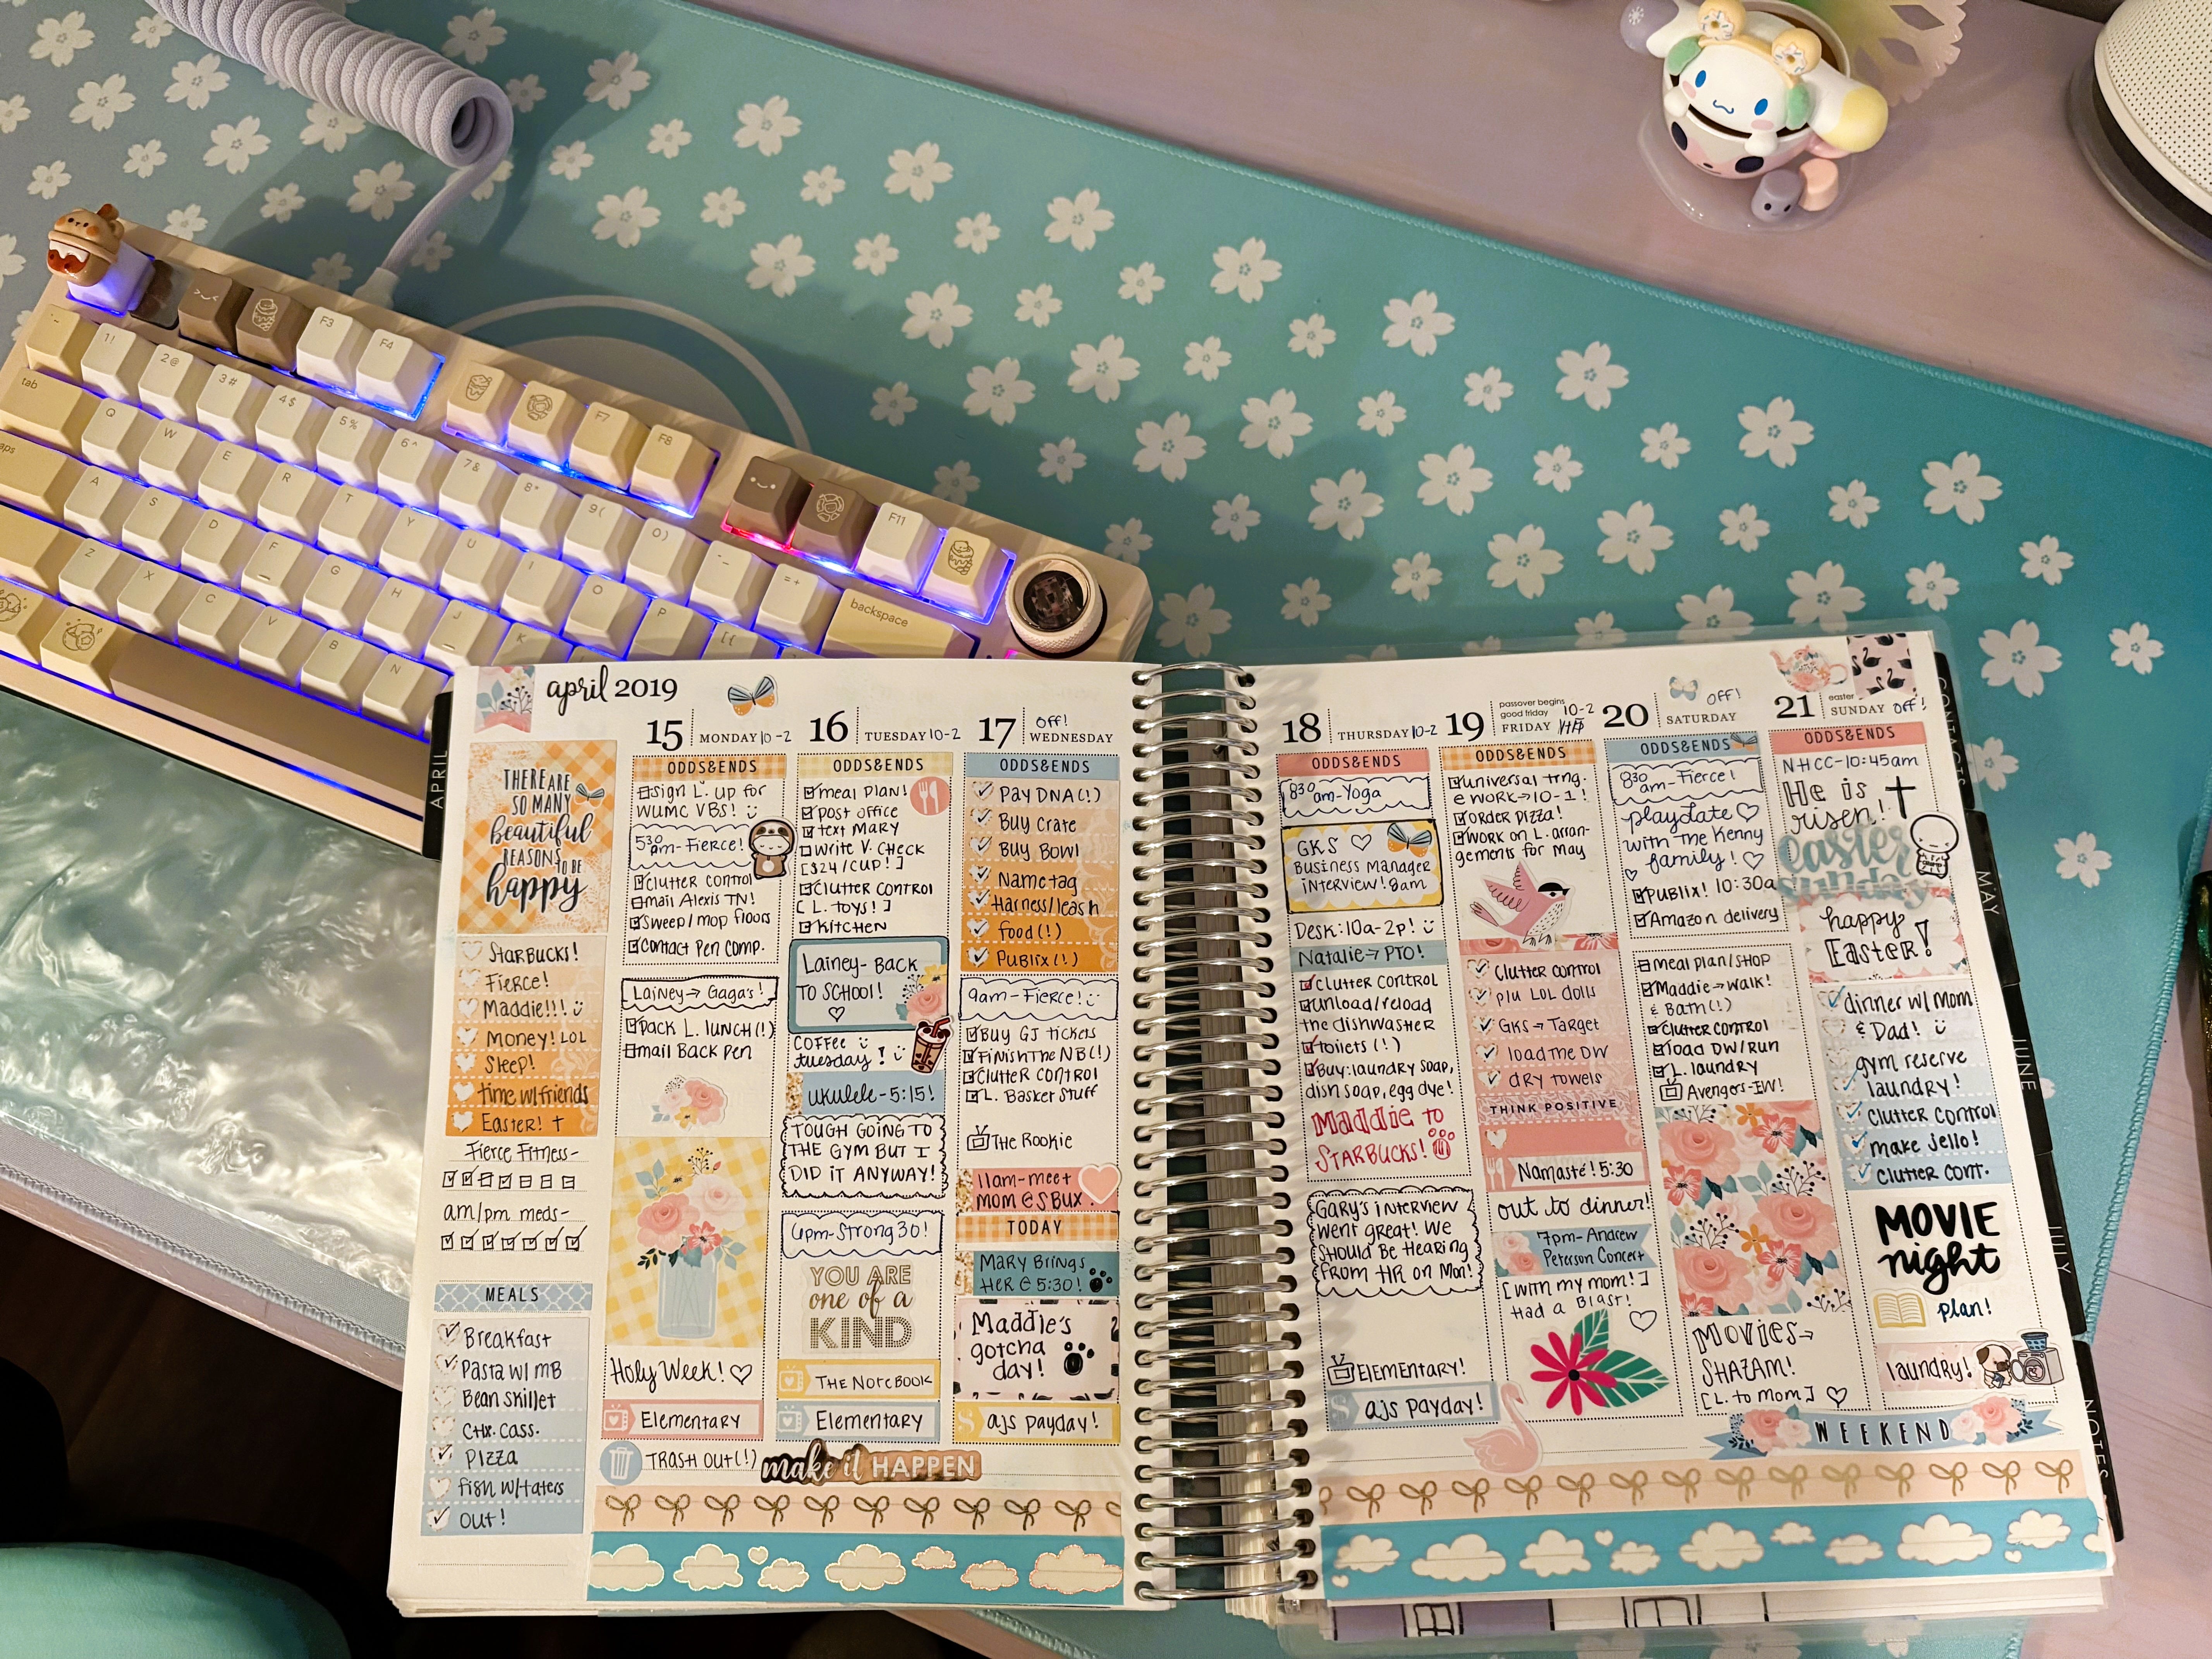 F3
F4
F7
F8
F11
~
1!
2@
3#
4$
5%
6^
7&
8*
9(
0)
-
=+
backspace
tab
Q
W
E
R
T
Y
U
I
O
P
[{
A
S
D
F
G
H
J
K
Z
X
C
V
B
N
APRIL
april 2019
THERE ARE
SO MANY
beautiful
REASONS
TO BE
happy
STARBUCKS!
Fierce!
Maddie!!!
Money! LOL
Sleep!
time w/friends
Easter! †
Fierce Fitness-
am/pm meds-
MEALS
Breakfast
Pasta w/ MB
Bean Skillet
CHK. Cass.
Pizza
Fish w/taters
out!
15 MONDAY 10-2
ODDS&ENDS
sign L. up for
WUMC VBS!
5:30 am-Fierce!
Clutter control
mail Alexis TN!
Sweep/mop floors
Contact Pen Comp.
Lainey→Gaga's!
pack L. lunch(!)
mail Back Pen
Holy Week! ♡
Elementary
TRASH OUT(!)
make it HAPPEN
16 TUESDAY 10-2
ODDS&ENDS
meal plan!
post office
text Mary
write V. check
[$24/cup!]
Clutter control
[L. toys!]
Kitchen
Lainey- Back
to School!
♡
Coffee
tuesday!
ukulele-5:15!
TOUGH GOING TO
THE GYM BUT I
DID IT ANYWAY!
6pm-Strong 30!
YOU ARE
one of a
KIND
The Notebook
Elementary
17 OFF! WEDNESDAY
ODDS&ENDS
Pay DNA(!)
Buy Crate
Buy Bowl
Name tag
Harness/leash
food(!)
Publix(!)
9am-Fierce!
Buy GS tickets
Finish The NB(!)
Clutter control
L. Basket Stuff
The Rookie
11am-meet
mom @ SBUX
TODAY
Mary Brings
Her @ 5:30!
Maddie's
gotcha
day!
ajs payday!
18 THURSDAY 10-2
ODDS&ENDS
8:30 am-Yoga
GKS ♡
Business Manager
interview! 8am
Desk: 10a-2p!
Natalie→PTO!
Clutter control
Unload/reload
the dishwasher
toilets (!)
Buy: laundry soap,
dish soap, egg dye!
Maddie to
Starbucks!
Gary's interview
went great! We
should be hearing
from HR on Mon!
Elementary!
ajs payday!
19 passover begins
good friday
FRIDAY 10-2
ODDS&ENDS
universal trng.
@ work→10-1!
order pizza!
work on L. arran-
gements for May
Clutter control
p/u LOL dolls
GKS→Target
load the DW
dry towels
THINK POSITIVE
Namasté! 5:30
out to dinner!
7pm-Andrew
Peterson Concert
[with my mom!]
Had a Blast!
♡
20 SATURDAY OFF!
ODDS&ENDS
8:30 am-Fierce!
playdate ♡
with the Kenny
family! ♡
Publix! 10:30a
Amazon delivery
Meal plan/shop
Maddie→walk!
& Bath(!)
Clutter control
load DW/run
L. laundry
Avengers-EW!
Movies→
SHAZAM!
[L. to mom] ♡
WEEKEND
21 easter
SUNDAY OFF!
ODDS&ENDS
NHCC-10:45am
He is
risen!
easter
sunday
happy
Easter!
dinner w/ Mom
& Dad!
gym reserve
laundry!
Clutter control
make jello!
Clutter cont.
MOVIE
night
plan!
laundry!
CONTACTS
MAY
JUNE
JULY
NOTES